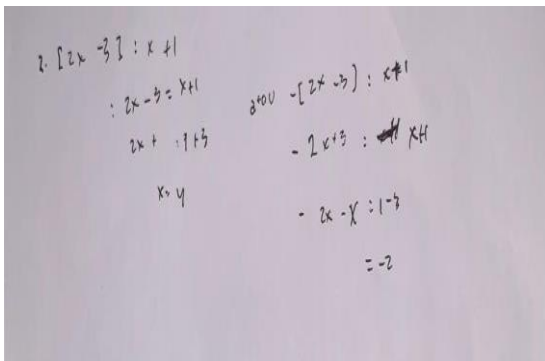 2. [2x -3] : x +1
: 2x - 3 = x+1
2x + : 1+3
x = 4
atau -[2x -3] : x+1
- 2x+3 : x+1
- 2x - x : 1-3
= -2